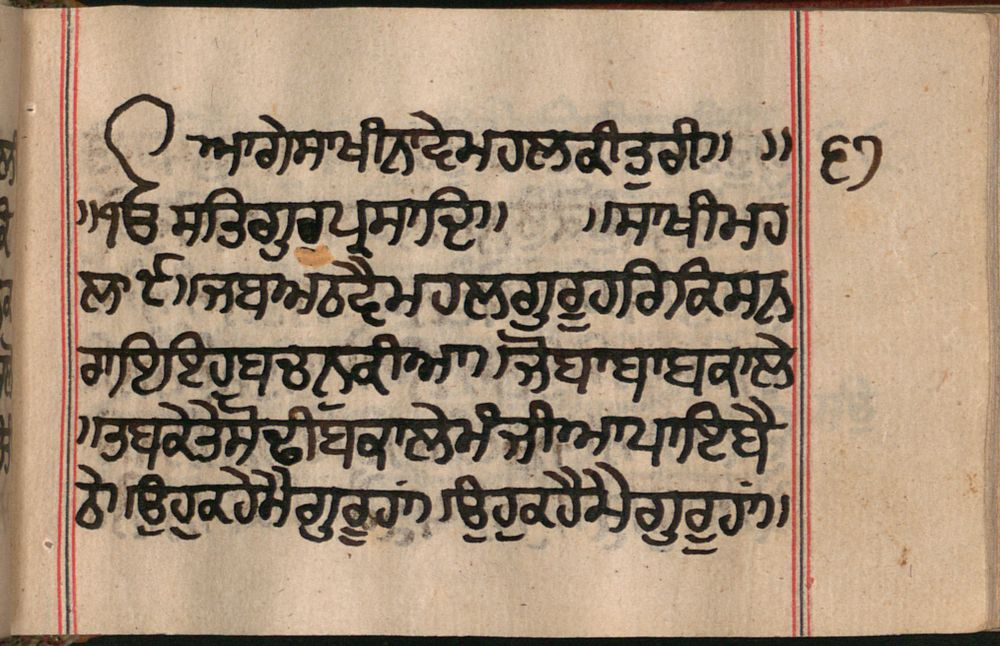 ਆਗੇਸਾਖੀਨਾਵੇਮਹਲਕੀਤੁਰੀ॥ ॥ ੬੭
॥ੴ ਸਤਿਗੁਰਪ੍ਰਸਾਦਿ॥ ॥ਸਾਖੀਮਹ
ਲਾ ੯॥ਜਬਅਠਵੈਮਹਲਗੁਰੂਹਰਿਕਿਸਨ
ਰਾਇਇਹੁਬਚਨੁਕੀਆ॥ਜੋਬਾਬਾਬਕਾਲੇ
॥ਤਬਕੇਤੈਸੋਢੀਬਕਾਲੇਮੰਜੀਆਪਾਇਬੈ
ਠੇ।ਉਹੁਕਹੇਮੈਗੁਰੂਹਾਂ।ਉਹੁਕਹੈਮੈਗੁਰੂਹਾਂ॥